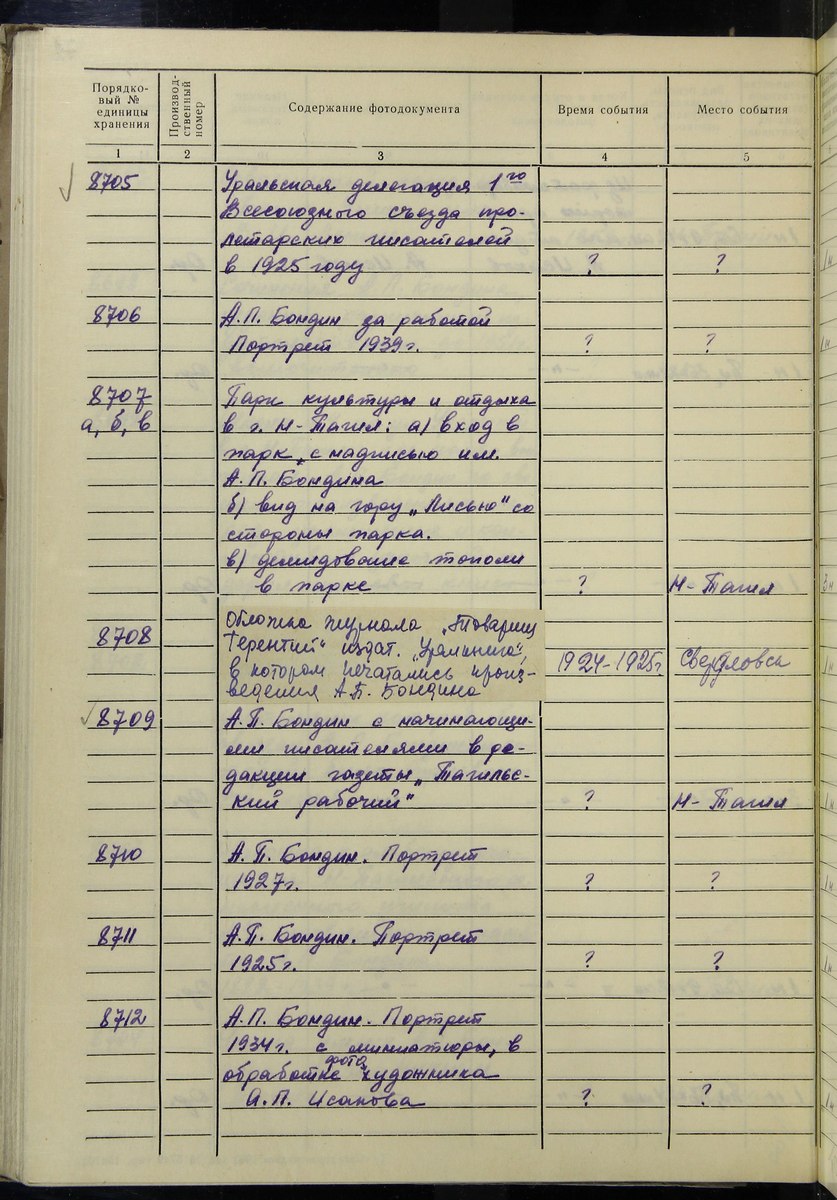 Порядко-
вый №
единицы
хранения
Производ-
ственный
номер
Содержание фотодокумента
Время события
Место события
1
2
3
4
5
8705
Уральская делегация 1го
Всесоюзного съезда про-
летарских писателей
в 1925 году
?
?
8706
А.П. Бондин за работой
Портрет 1939 г.
?
?
8707
Парк культуры и отдыха
а, б, в
в г. Н-Тагил: а) вход в
парк, с надписью им.
А.П. Бондина
б) вид на гору „Лисью" со
стороны парка.
в) демидовские тополи
в парке
?
Н-Тагил
8708
Обложка журнала „Товарищ
Терентий" издат. „Уралкнига",
в котором печатались произ-
ведения А.П. Бондина
1924-1925г.
Свердловск
8709
А.П. Бондин с начинающи-
ми писателями в ре-
дакции газеты „Тагильс-
кий рабочий"
?
Н-Тагил
8710
А.П. Бондин. Портрет
1927г.
?
?
8711
А.П. Бондин. Портрет
1925 г.
?
?
8712
А.П. Бондин. Портрет
1934г. с миниатюры, в
обработке фотохудожника
А.П. Исакова
?
?